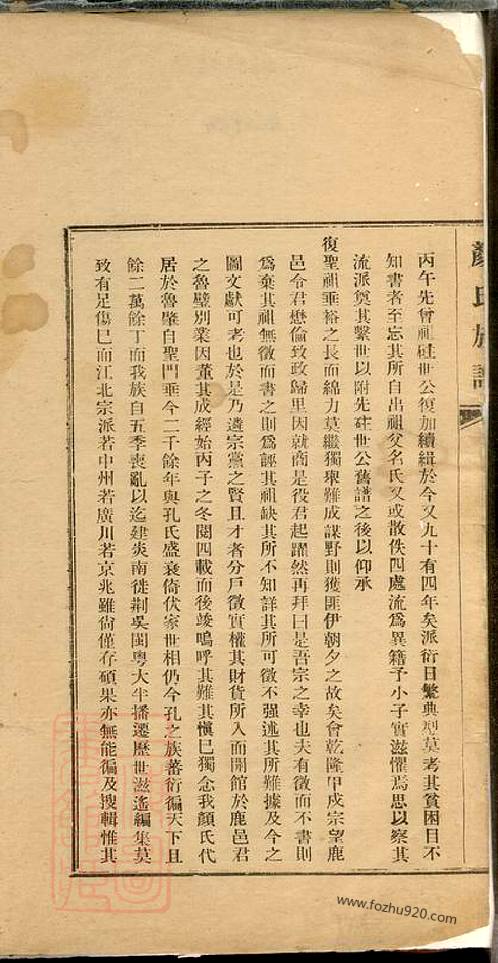 顏氏族譜
丙午先曾祖硅世公復加續緝於今又九十有四年矣派衍日繁典型莫考其貧困目不
知書者至忘其所自出祖父名氏又或散佚四處流為異籍予小子實滋懼焉思以察其
流派奠其繫世以附先硅世公舊譜之後以仰承
復聖祖垂裕之長而綿力莫繼獨舉難成謀野則獲匪伊朝夕之故矣會乾隆甲戍宗望鹿
邑令君懋倫致政歸里因就商是役君起躍然再拜曰是吾宗之幸也夫有徵而不書則
為棄其祖無徵而書之則為誣其祖缺其所不知詳其所可徵不强述其所難據及今之
圖文獻可考也於是乃遴宗黨之賢且才者分戶徵實權其財貨所入而開館於鹿邑君
之魯壁別業因董其成經始丙子之冬閱四載而後竣嗚呼其難其慎巳獨念我顏氏代
居於魯肇自聖門垂今二千餘年與孔氏盛衰倚伏家世相仍今孔之族蕃衍徧天下且
餘二萬餘丁而我族自五季喪亂以迄建炎南徙荆吳閩粵大半播遷歷世滋遙編集莫
致有足傷巳而江北宗派若中州若廣川若京兆雖尙僅存碩果亦無能徧及搜輯惟其
www.fozhu920.com